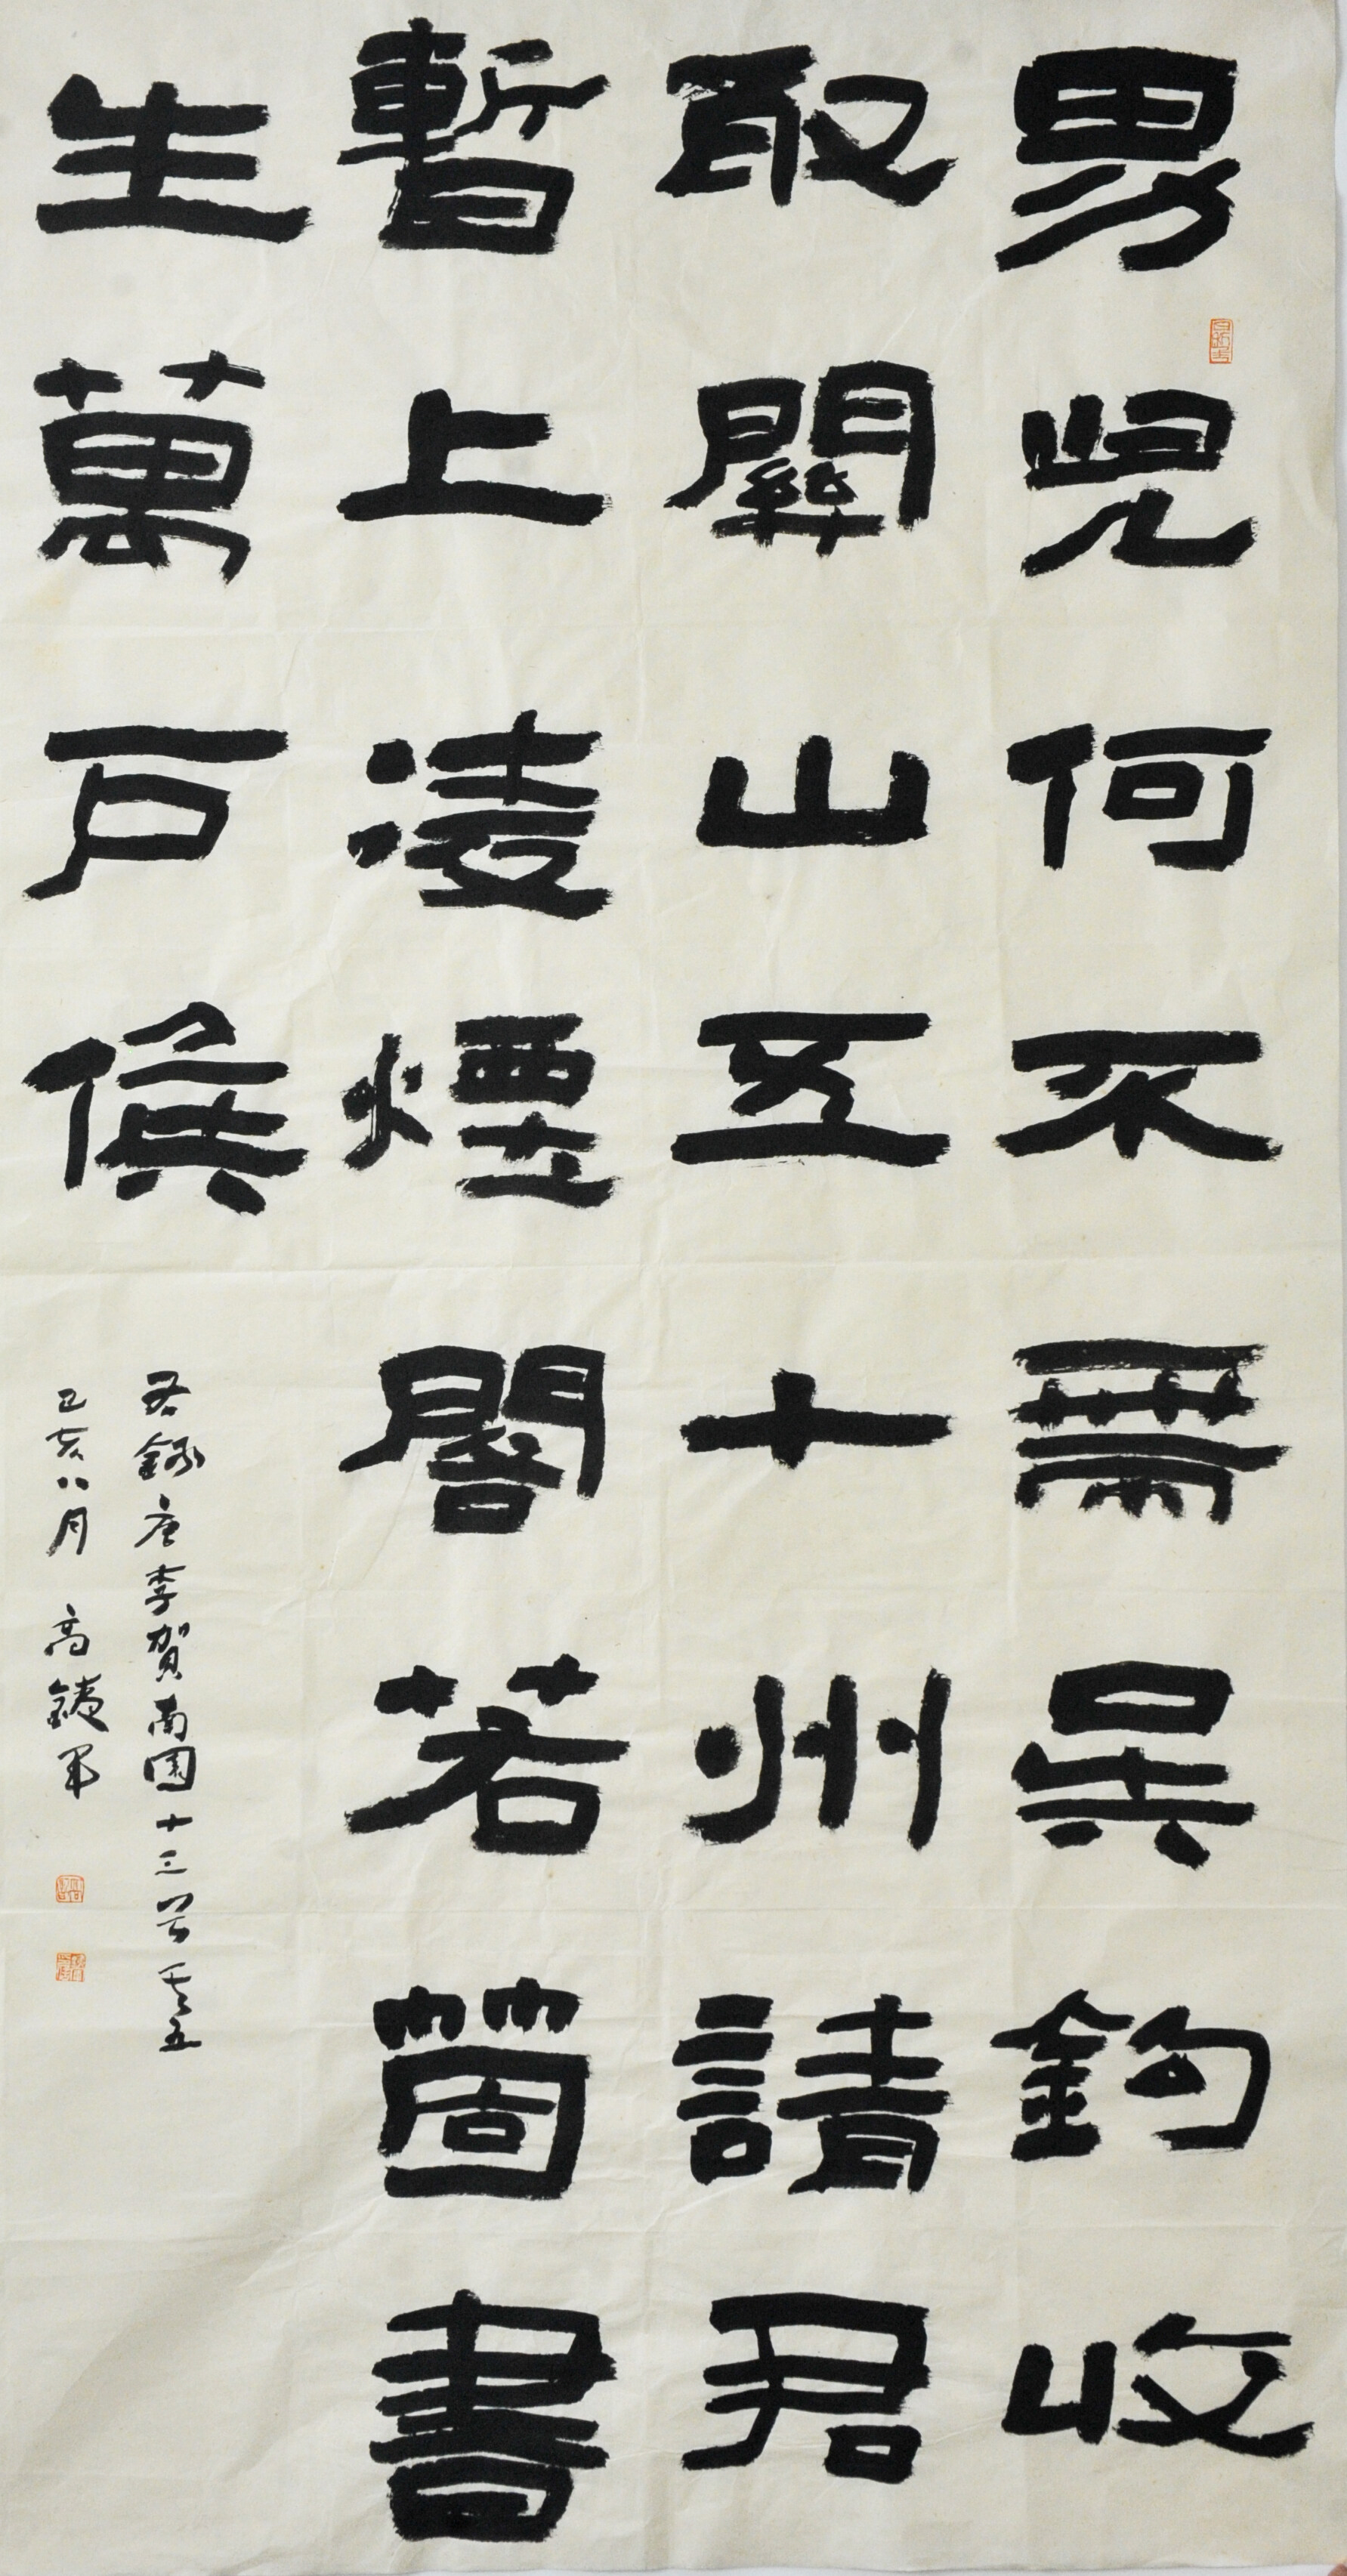 男兒何不帶吳鈎收
取關山五十州請君
暫上凌煙閣若箇書
生萬戶侯
右錄唐李賀南園十三首其五
己亥八月 高銕軍